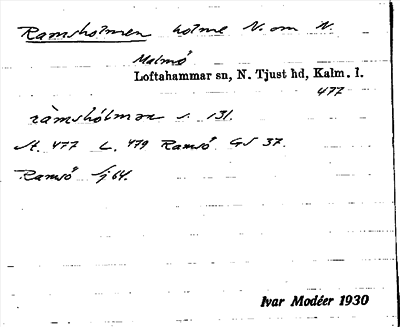 Ramsholmen holme N. om N.
Malmö
Loftahammar sn, N. Tjust hd, Kalm. l.
477
ràmshólmən s. 131.
A. 477 L. 479 Ramsö GS 37.
Ramsö Sj 64.
Ivar Modéer 1930